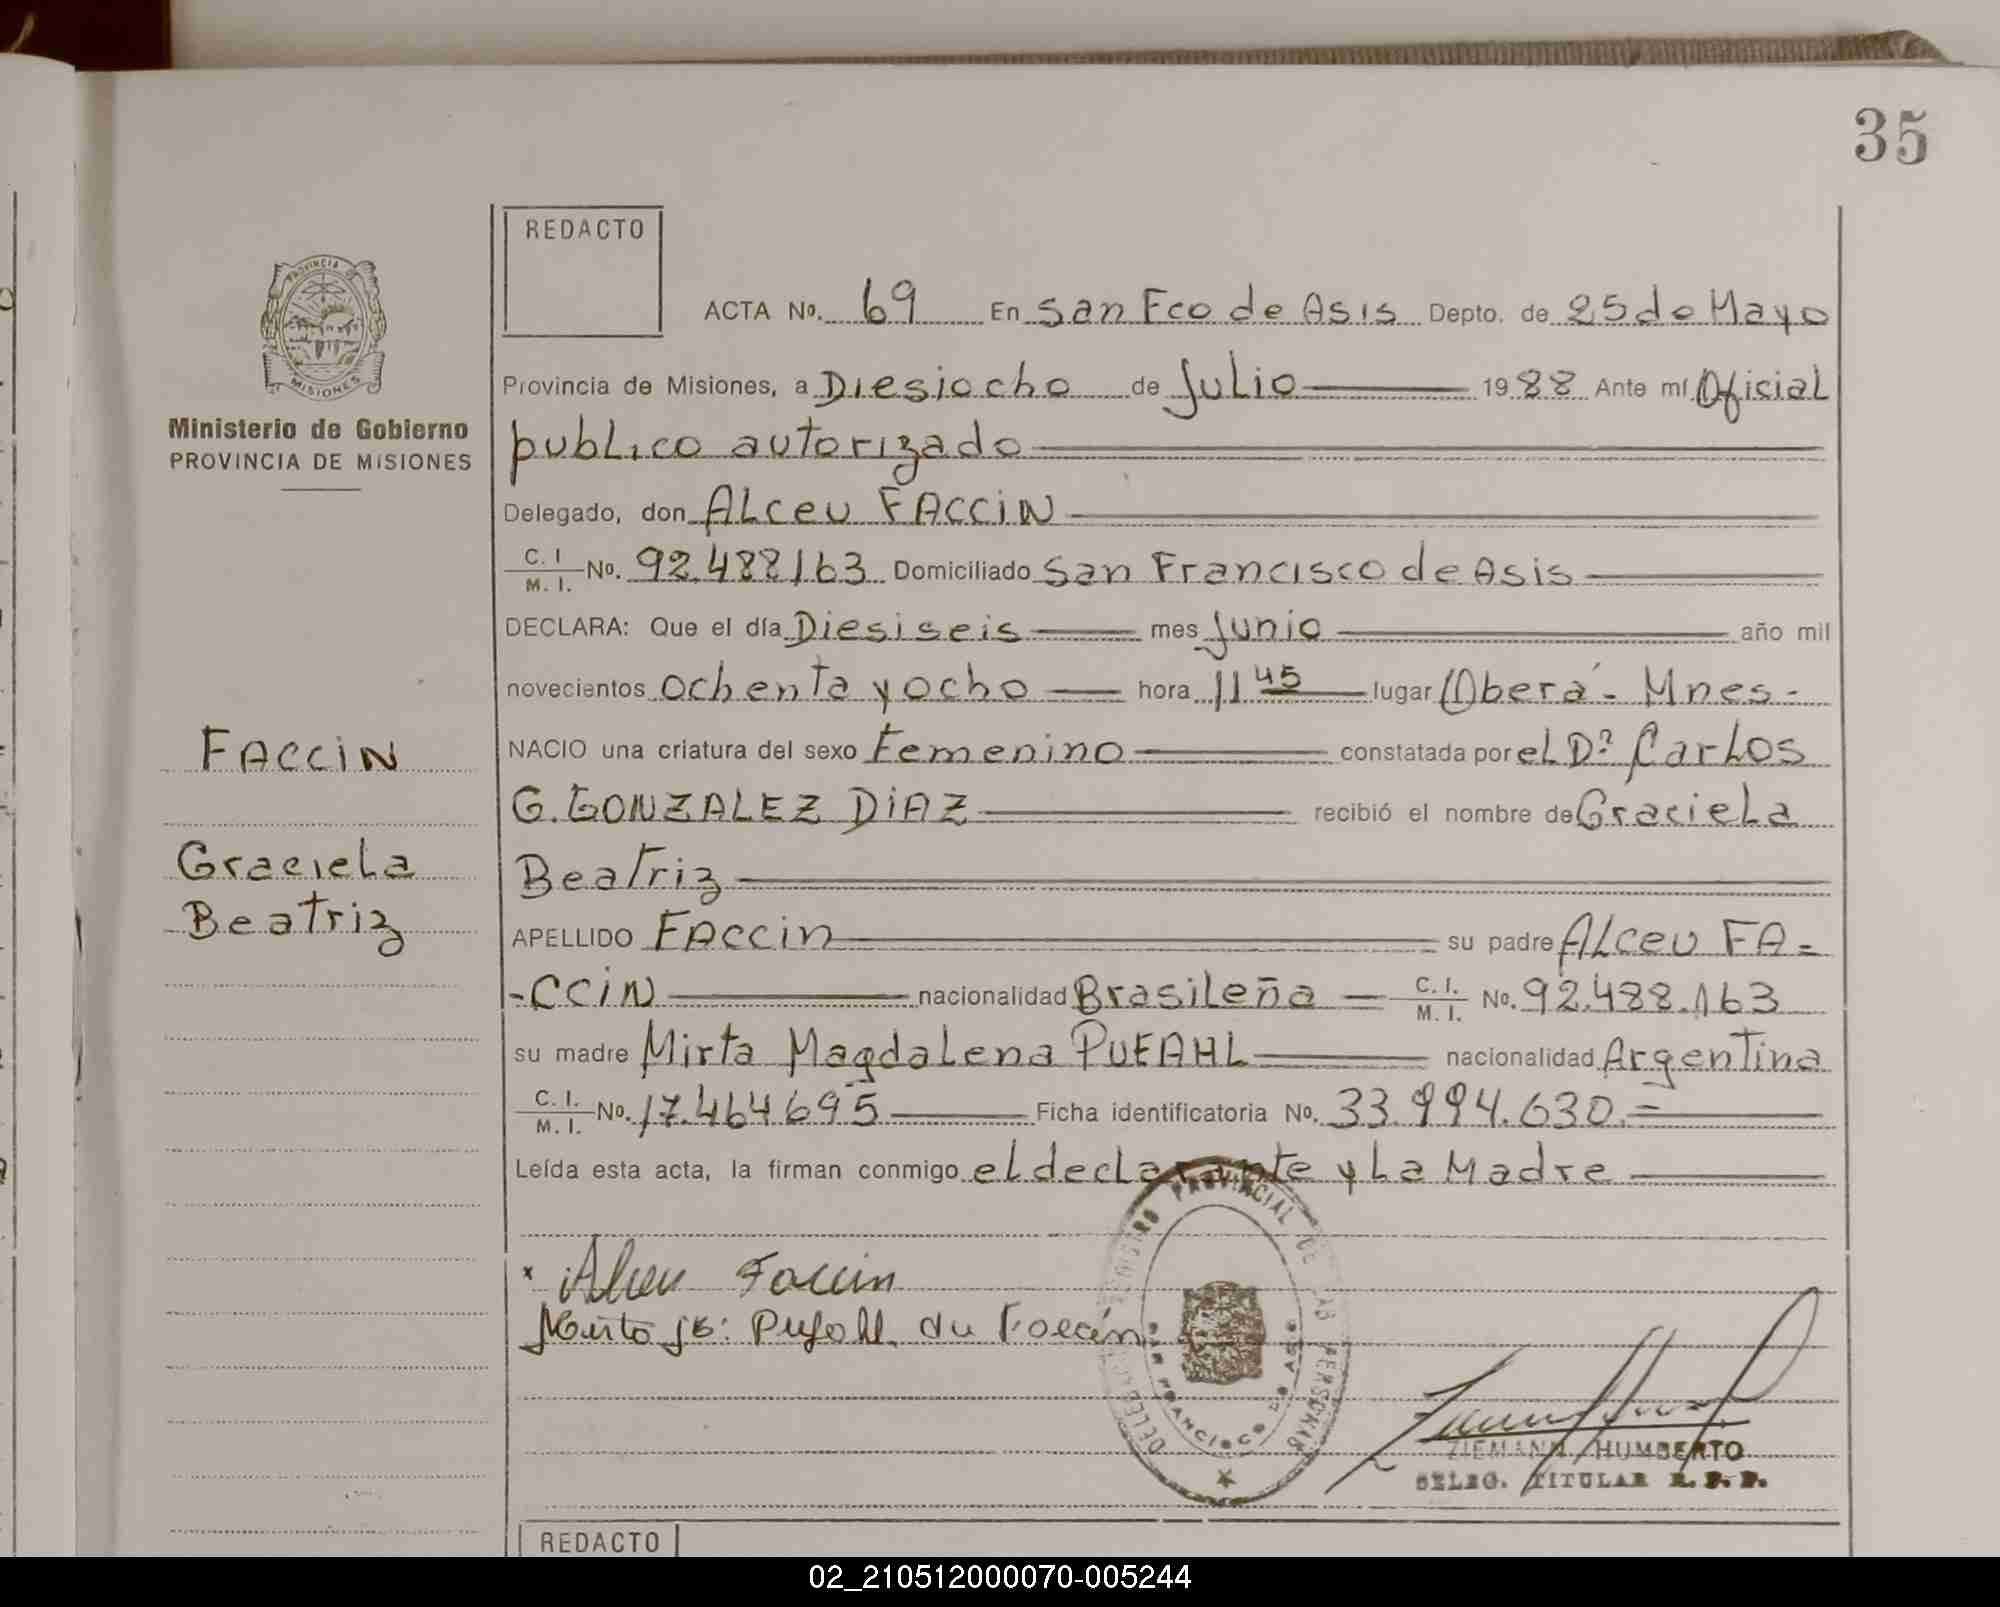 35
REDACTO
PROVINCIA DE
MISIONES
Ministerio de Gobierno
PROVINCIA DE MISIONES
ACTA No. 69 En San Fco de Asis Depto. de 25 de Mayo
Provincia de Misiones, a Diesiocho de Julio 1988 Ante mí Oficial
publico autorizado
Delegado, don Alceu FACCIN
C. I. / M. I. No. 92.488163 Domiciliado San Francisco de Asis
DECLARA: Que el día Diesiseis mes Junio año mil
novecientos ochenta y ocho hora 11 45 lugar Oberá - Mnes -
NACIO una criatura del sexo Femenino constatada por el Dr Carlos
G. GONZALEZ DIAZ recibió el nombre de Graciela
Beatriz
APELLIDO FAccin su padre Alceu FA=
-CCIN nacionalidad Brasileña C. I. / M. I. No. 92.488.163
su madre Mirta Magdalena PUFAHL nacionalidad Argentina
C. I. / M. I. No. 17.464695 Ficha identificatoria No. 33.994.630.=
Leída esta acta, la firman conmigo el declarante y La Madre
FACCIN
Graciela
Beatriz
x Alceu Faccin
PROVINCIAL DE LAS PERSONAS
SAN FRANCISCO DE ASIS
ZIEMANN, HUMBERTO
DELEG. TITULAR R. P. P.
REDACTO
02_210512000070-005244